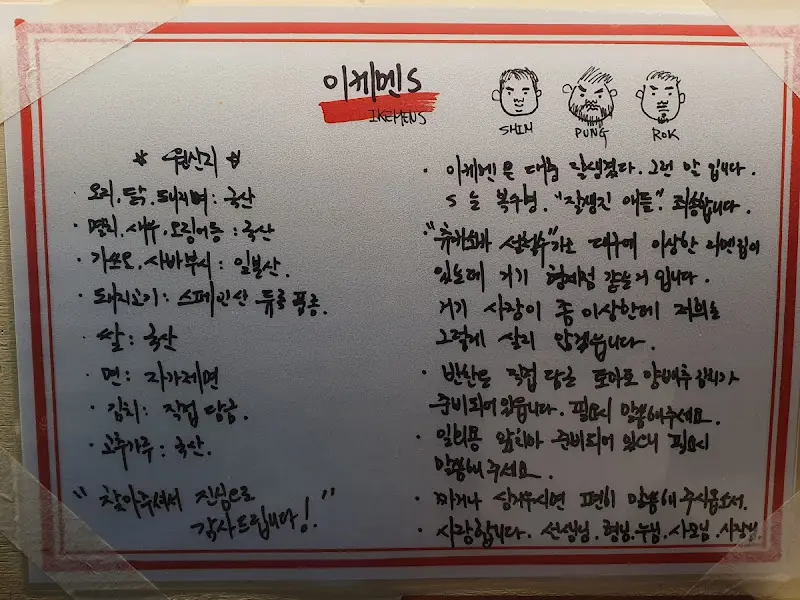 이케멘 S
IKEMENS
SHIN
PUNG
ROK
* 원산지 *
· 오리, 닭, 돼지뼈 : 국산
· 멸치, 새우, 오징어등 : 국산
· 가쓰오, 사바부시 : 일본산.
· 돼지고기 : 스페인산 듀록 품종.
· 쌀 : 국산
· 면 : 자가제면
· 김치 : 직접 담금.
· 고추가루 : 국산.
" 찾아주셔서 진심으로
감사드립니다! "
· 이케멘은 대충 잘생겼다. 그런 말 입니다.
S 는 복수형. "잘생긴 애들". 죄송합니다.
"츄카소바 선성수"라는 대구에 이상한 라멘집이
있는데 거기 형제점 같은거 입니다.
거기 사장이 좀 이상한데 저희는
그렇게 살지 않겠습니다.
· 반찬은 직접 담근 토마토 양배추 김치가
준비되어있습니다. 필요시 말씀해주세요.
· 일회용 앞치마 준비되어 있으니 필요시
말씀해주세요.
· 짜거나 싱거우시면 편히 말씀해 주시옵소서.
· 사랑합니다. 선생님. 형님. 누님. 사모님. 사장님.